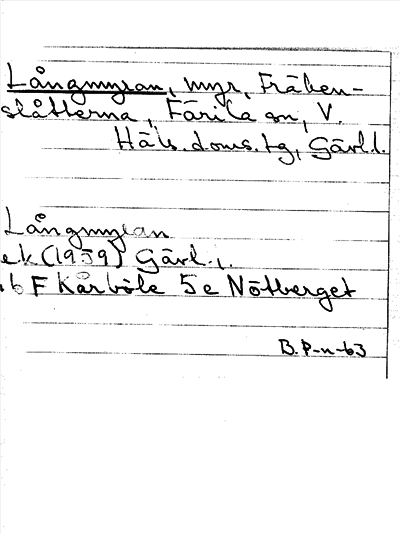 Långmyran, myr, Fräben-
slåtterna, Färila sn, V.
Häls. doms. tg, Gävl.l.
Långmyran
ek (1959) Gävl.l.
16 F Kårböle 5e Nötberget
B.P-n-63